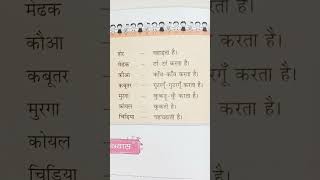 शेर – दहाड़ता है।
मेढक – टर्र-टर्र करता है।
कौआ – काँव-काँव करता है।
कबूतर – गुटरगूँ-गुटरगूँ करता है।
मुरगा – कुकड़ू-कूँ करता है।
कोयल – कूकती है।
चिड़िया – चहचहाती है।
मेढक
कौआ
कबूतर
मुरगा
कोयल
चिड़िया
करता है।
करता है।
करता है।